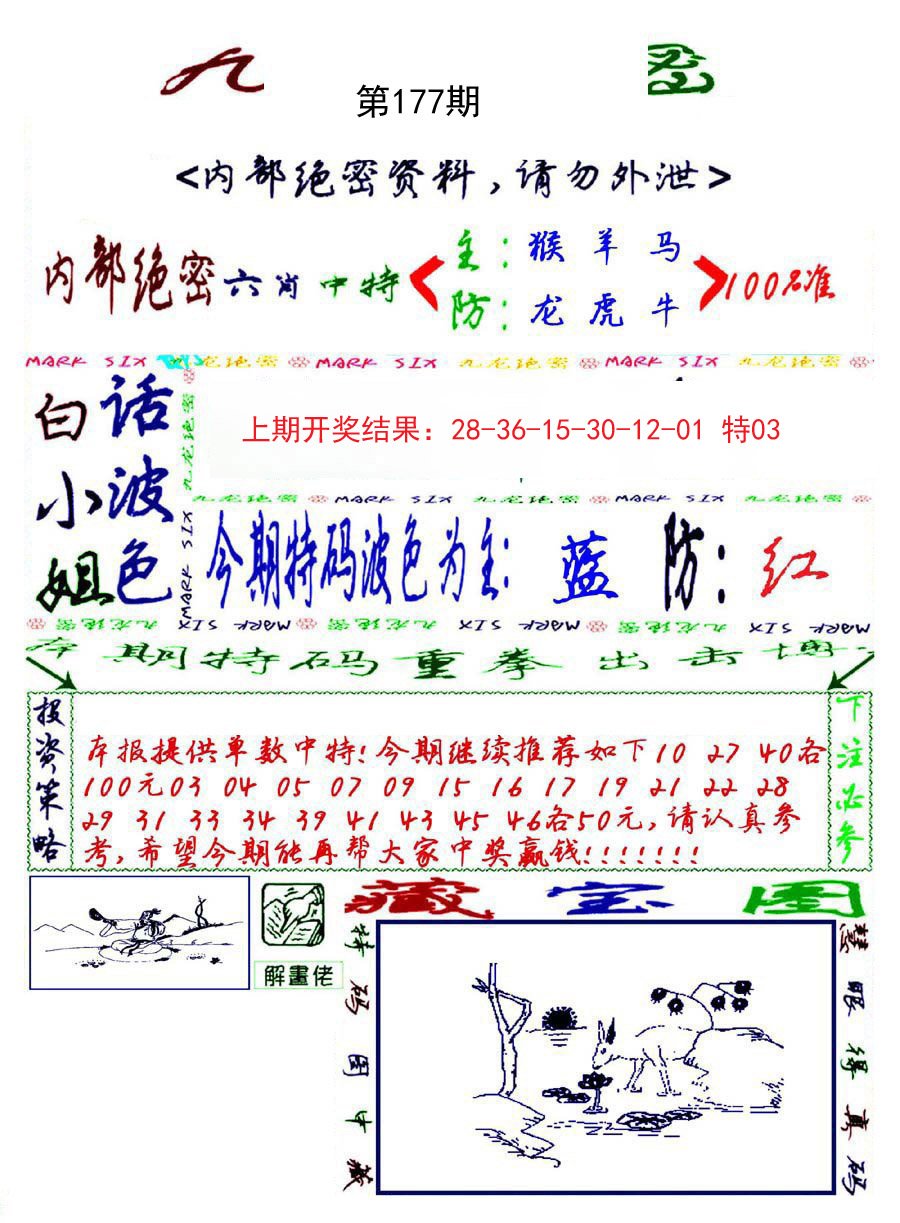 九 密
第177期
<内部绝密资料,请勿外泄>
内部绝密六肖中特
主:猴 羊 马
防:龙 虎 牛
100%准
MARK SIX 九龙绝密 MARK SIX 九龙绝密 MARK SIX 九龙绝密
白话
小波
姐色
九龙绝密
MARK SIX
上期开奖结果:28-36-15-30-12-01 特03
九龙绝密 MARK SIX 九龙绝密 MARK SIX 九龙绝密
今期特码波色为主: 蓝 防: 红
九龙绝密 MARK SIX 九龙绝密 MARK SIX 九龙绝密 MARK SIX
本期特码重拳出击博
投资策略
本报提供单数中特!今期继续推荐如下10 27 40各
100元03 04 05 07 09 15 16 17 19 21 22 28
29 31 33 34 39 41 43 45 46各50元,请认真参
考,希望今期能再帮大家中奖赢钱!!!!!!!
下注必参
解畫佬
藏宝图
特码图中藏
慧眼得真码